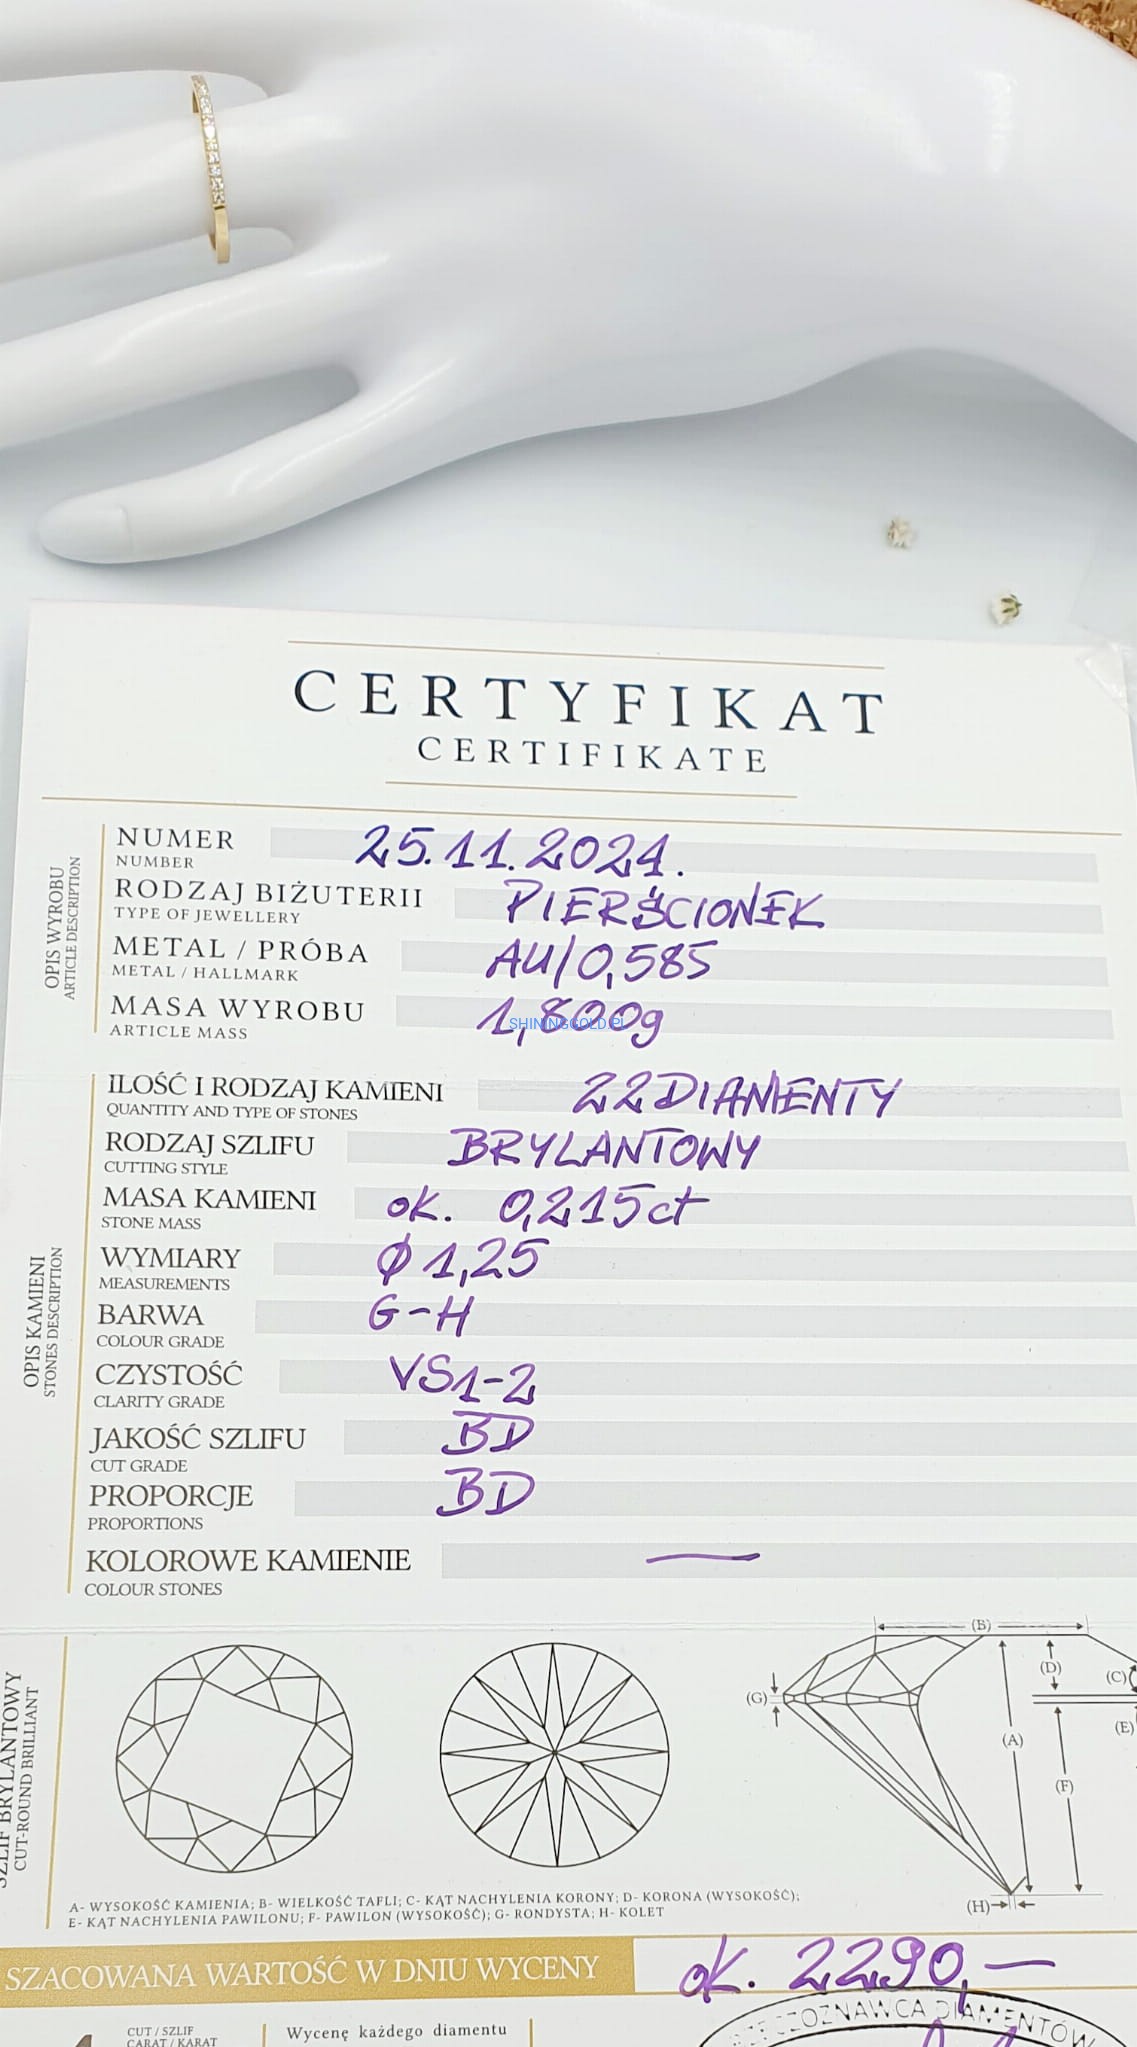 CERTYFIKAT
CERTIFIKATE
OPIS WYROBU
ARTICLE DESCRIPTION
NUMER 25.11.2024.
NUMBER
RODZAJ BIŻUTERII PIERŚCIONEK
TYPE OF JEWELLERY
METAL / PRÓBA AU/0,585
METAL / HALLMARK
MASA WYROBU 1,800g
ARTICLE MASS
SHININGGOLD.PL
OPIS KAMIENI
STONES DESCRIPTION
ILOŚĆ I RODZAJ KAMIENI 22 DIAMENTY
QUANTITY AND TYPE OF STONES
RODZAJ SZLIFU BRYLANTOWY
CUTTING STYLE
MASA KAMIENI ok. 0,215ct
STONE MASS
WYMIARY Ø 1,25
MEASUREMENTS
BARWA G-H
COLOUR GRADE
CZYSTOŚĆ VS1-2
CLARITY GRADE
JAKOŚĆ SZLIFU BD
CUT GRADE
PROPORCJE BD
PROPORTIONS
KOLOROWE KAMIENIE —
COLOUR STONES
SZLIF BRYLANTOWY
CUT-ROUND BRILLIANT
(B)
(D)
(C)
(G)
(E)
(A)
(F)
(H)
A- WYSOKOŚĆ KAMIENIA; B- WIELKOŚĆ TAFLI; C- KĄT NACHYLENIA KORONY; D- KORONA (WYSOKOŚĆ);
E- KĄT NACHYLENIA PAWILONU; F- PAWILON (WYSOKOŚĆ); G- RONDYSTA; H- KOLET
SZACOWANA WARTOŚĆ W DNIU WYCENY ok. 2290,—
RZECZOZNAWCA DIAMENTÓW
CUT / SZLIF
CARAT / KARAT
Wycenę każdego diamentu